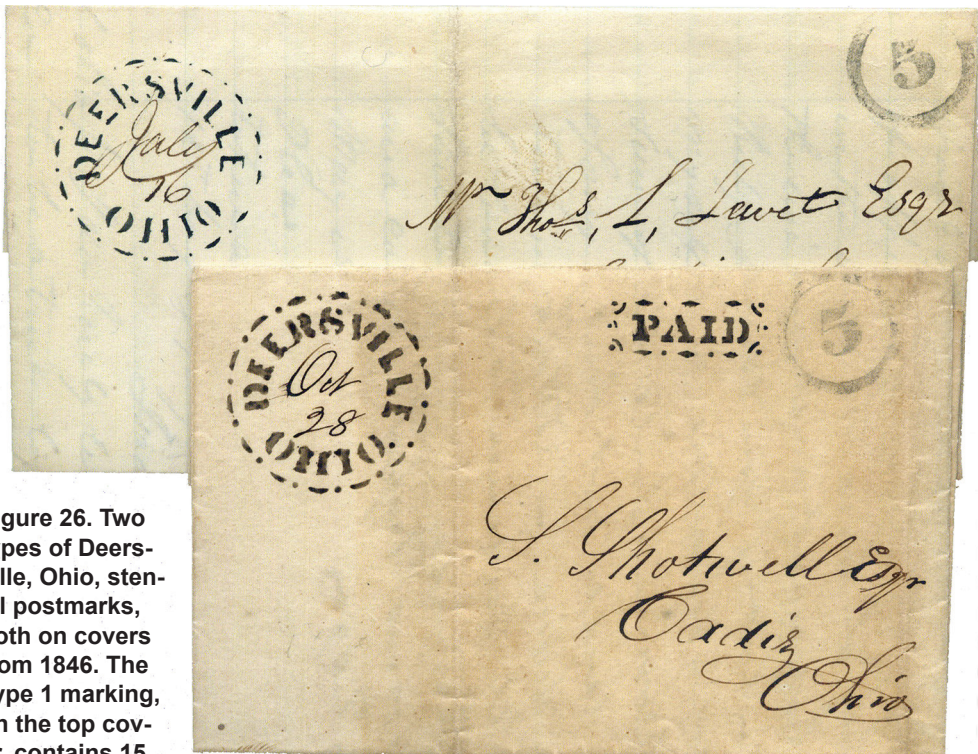 DEERSVILLE
July
16
OHIO
5
Mr Thos, L, Jewet Esqr
DEERSVILLE
Oct
28
OHIO
PAID
5
S. Shotwell Esqr
Cadiz
Ohio
gure 26. Two
ypes of Deers-
lle, Ohio, sten-
l postmarks,
oth on covers
om 1846. The
ype 1 marking,
n the top cov-
r, contains 15